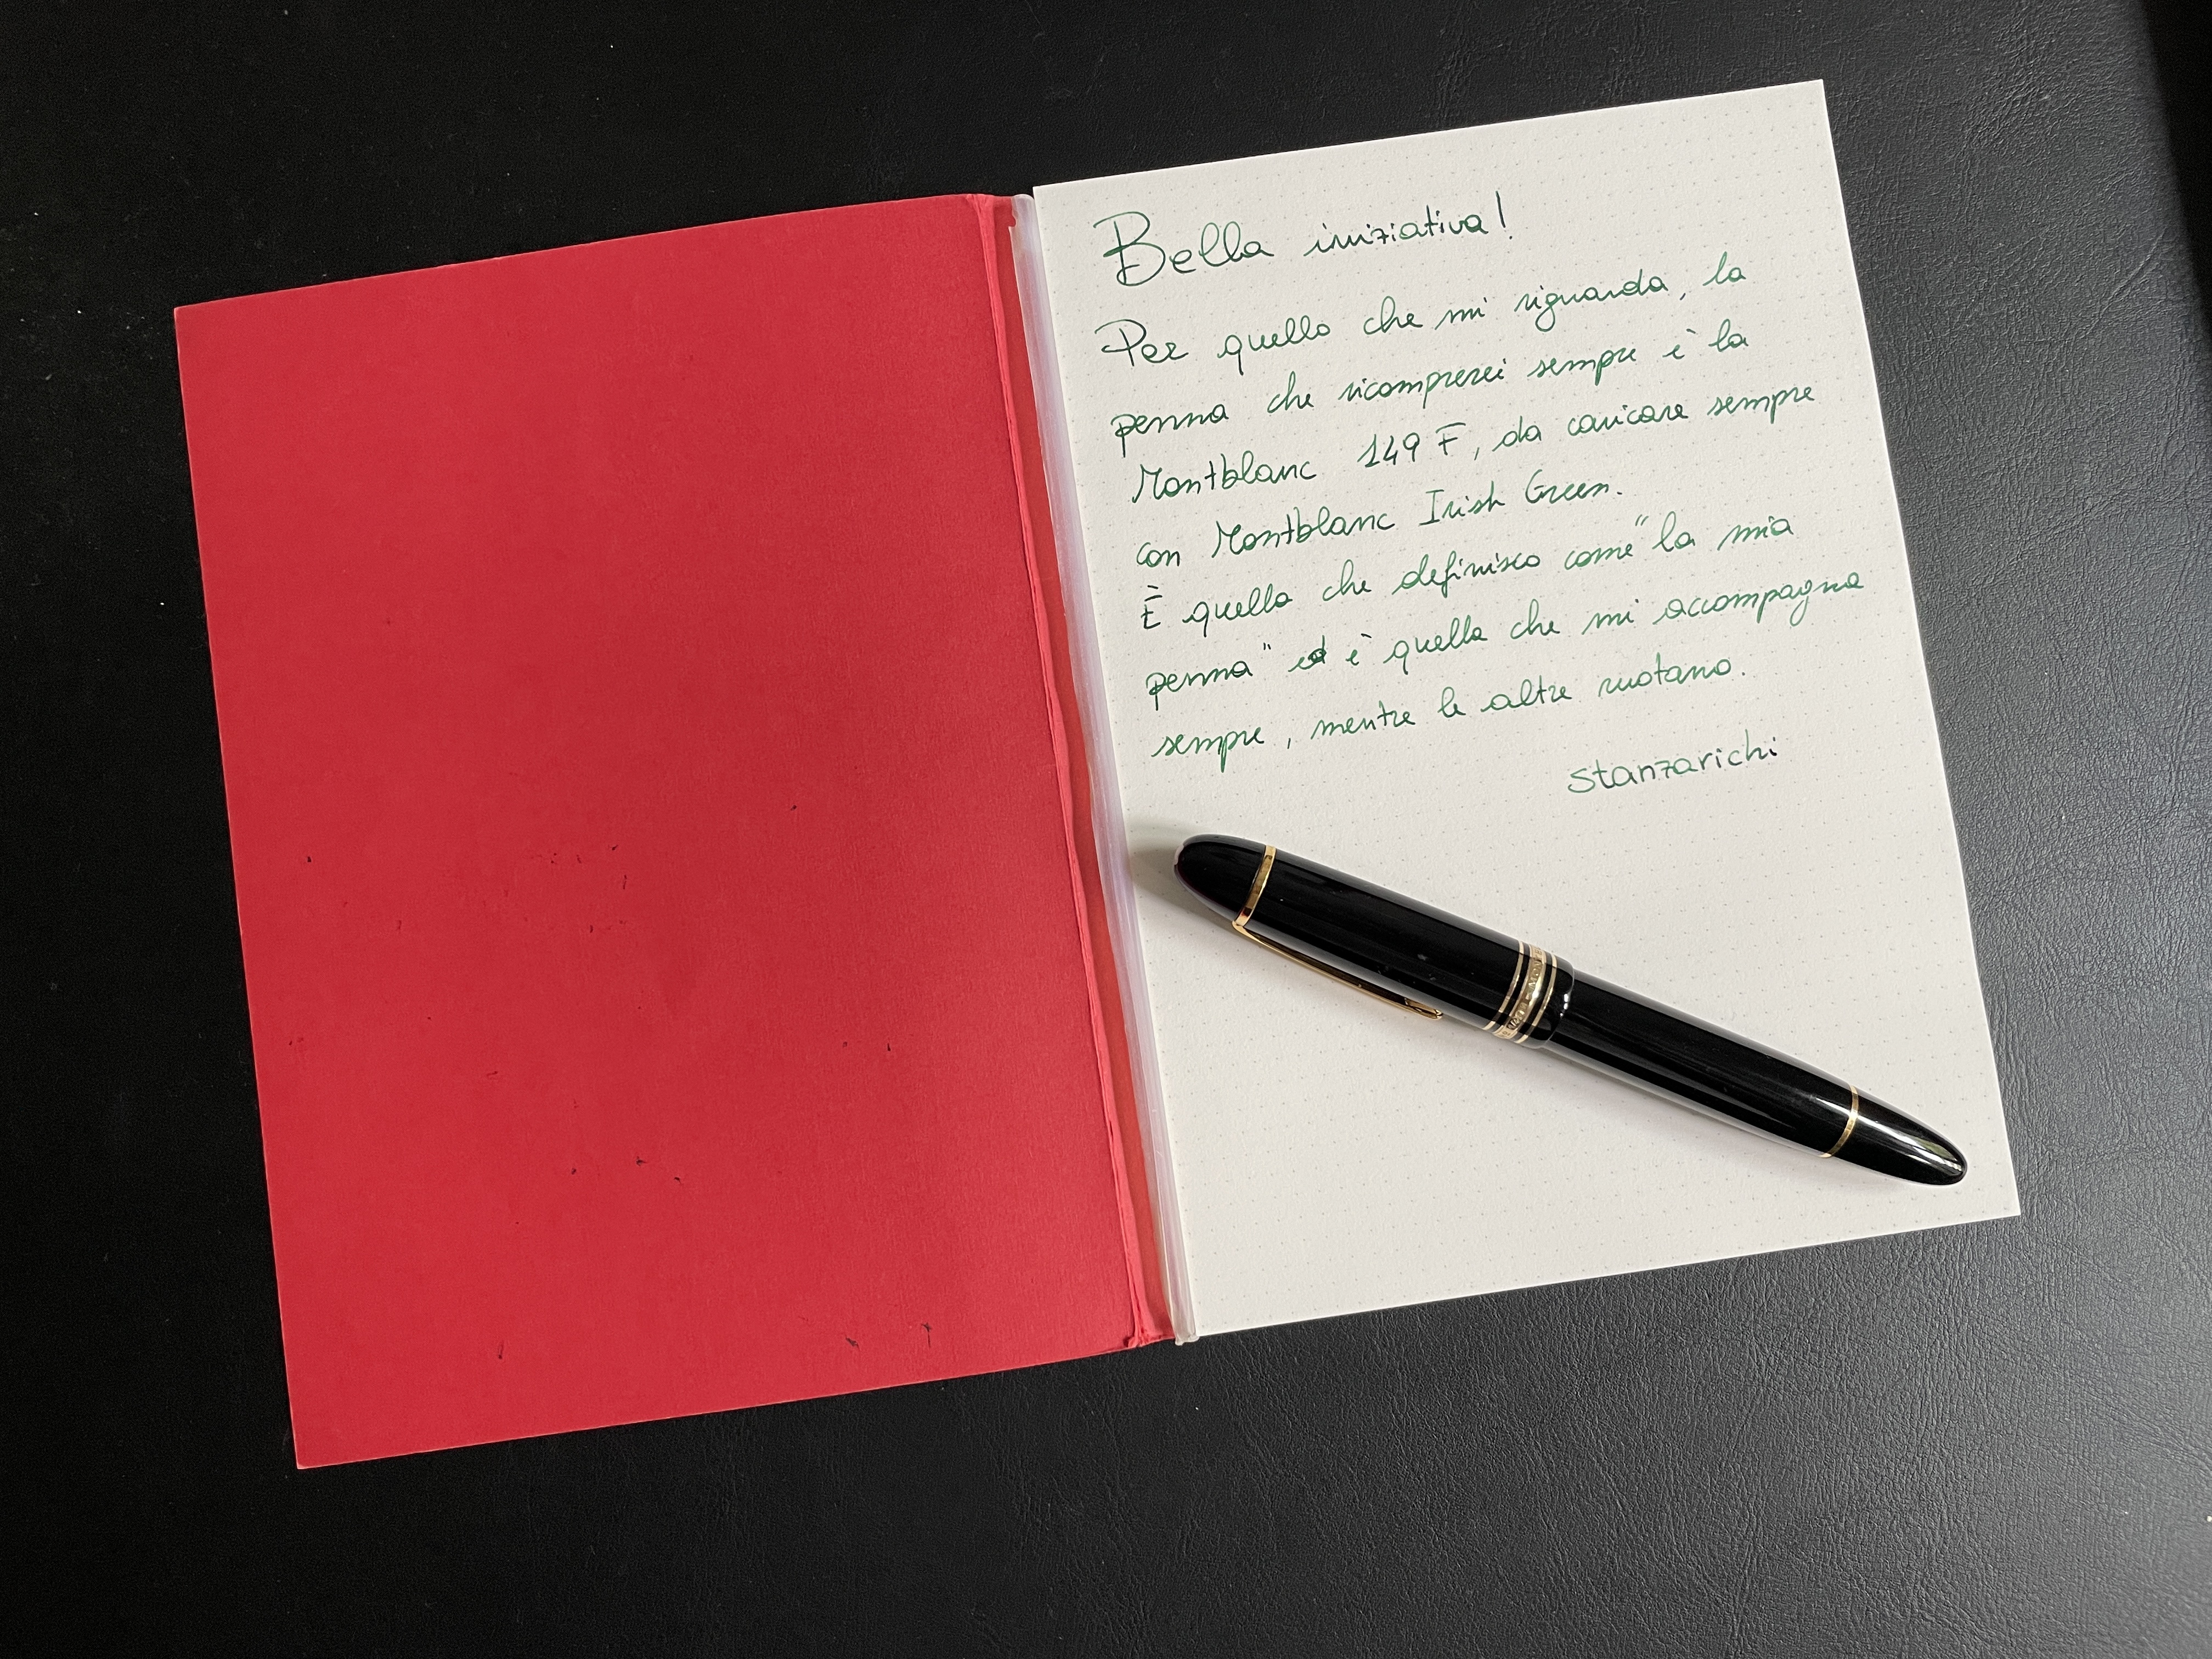 Bella iniziativa!
Per quello che mi riguarda, la
penna che ricomprerei sempre è la
Montblanc 149 F, da caricare sempre
con Montblanc Irish Green.
È quella che definisco come "la mia
penna" ed è quella che mi accompagna
sempre, mentre le altre ruotano.
stanzarichi